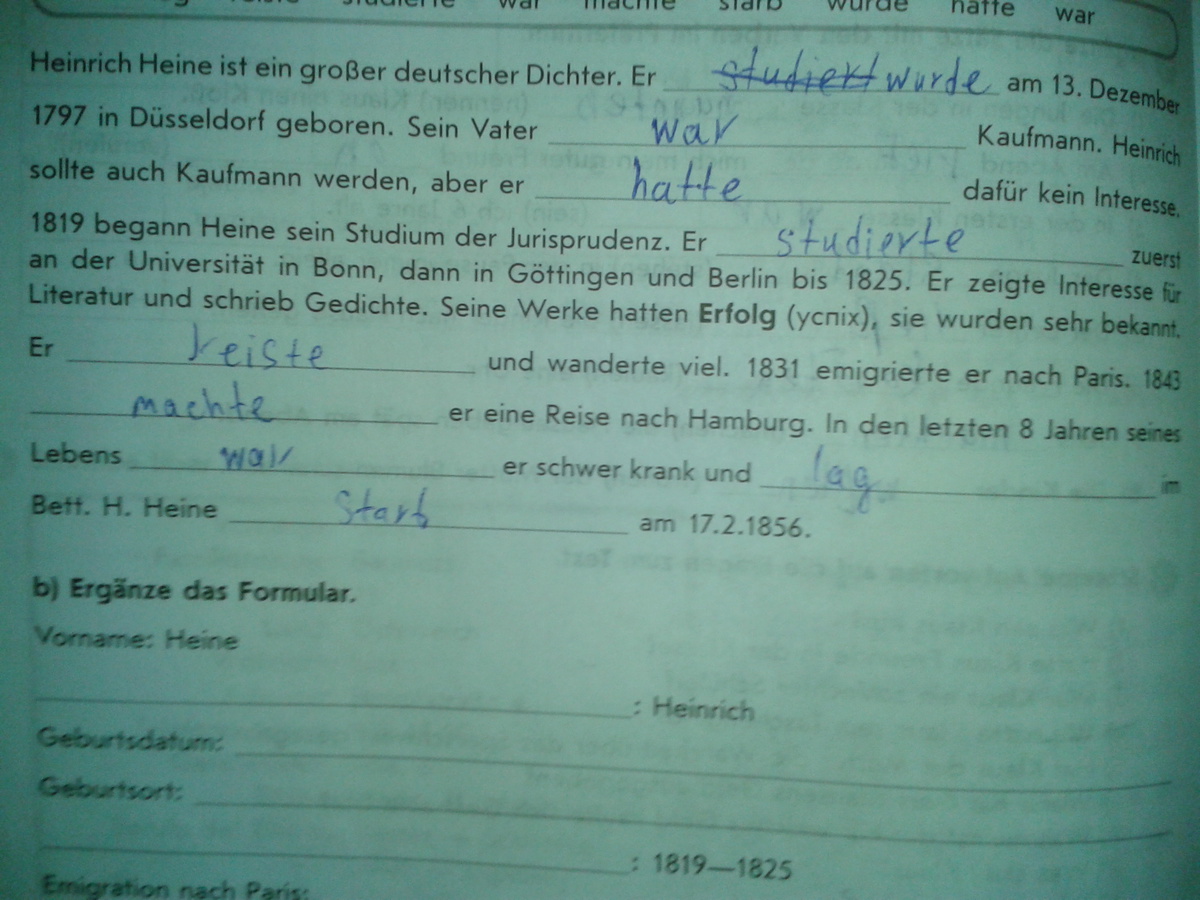 studierte war machte starb wurde hatte war
Heinrich Heine ist ein großer deutscher Dichter. Er studiert wurde am 13. Dezember
1797 in Düsseldorf geboren. Sein Vater war Kaufmann. Heinrich
sollte auch Kaufmann werden, aber er hatte dafür kein Interesse.
1819 begann Heine sein Studium der Jurisprudenz. Er studierte zuerst
an der Universität in Bonn, dann in Göttingen und Berlin bis 1825. Er zeigte Interesse für
Literatur und schrieb Gedichte. Seine Werke hatten Erfolg (успіх), sie wurden sehr bekannt.
Er reiste und wanderte viel. 1831 emigrierte er nach Paris. 1843
machte er eine Reise nach Hamburg. In den letzten 8 Jahren seines
Lebens war er schwer krank und lag im
Bett. H. Heine starb am 17.2.1856.
b) Ergänze das Formular.
Vorname: Heine
: Heinrich
Geburtsdatum:
Geburtsort:
: 1819—1825
Emigration nach Paris: